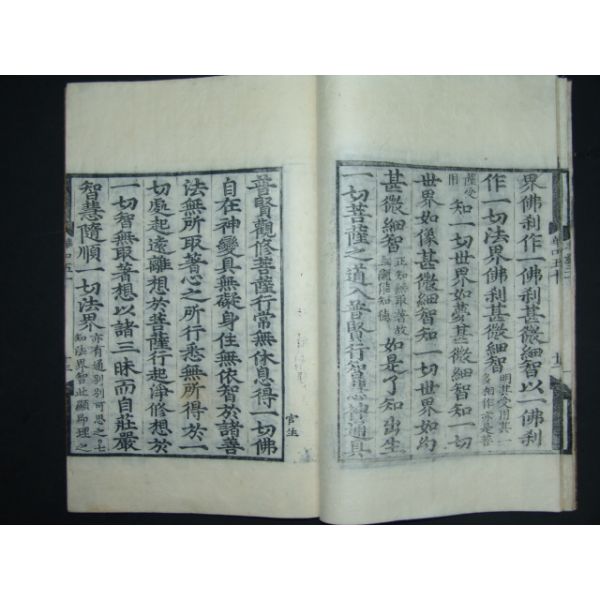 界佛刹作一佛刹甚微細智以一佛刹
作一切法界佛刹甚微細智
明其受用其一
薩受
用
知一切世界如夢甚微細智知一切
世界如像甚微細智知一切世界如幻
甚微細智
正知無取著故
如是了知出生
一切菩薩之道入普賢行智慧神通具
普賢觀修菩薩行常無休息得一切佛
自在神變具無礙身住無依智於諸善
法無所取著心之所行悉無所得於一
切處起遠離想於菩薩行起淨修想於
一切智無取著想以諸三昧而自莊嚴
智慧隨順一切法界
亦有通別別可思之七
知法界智此顯即理之